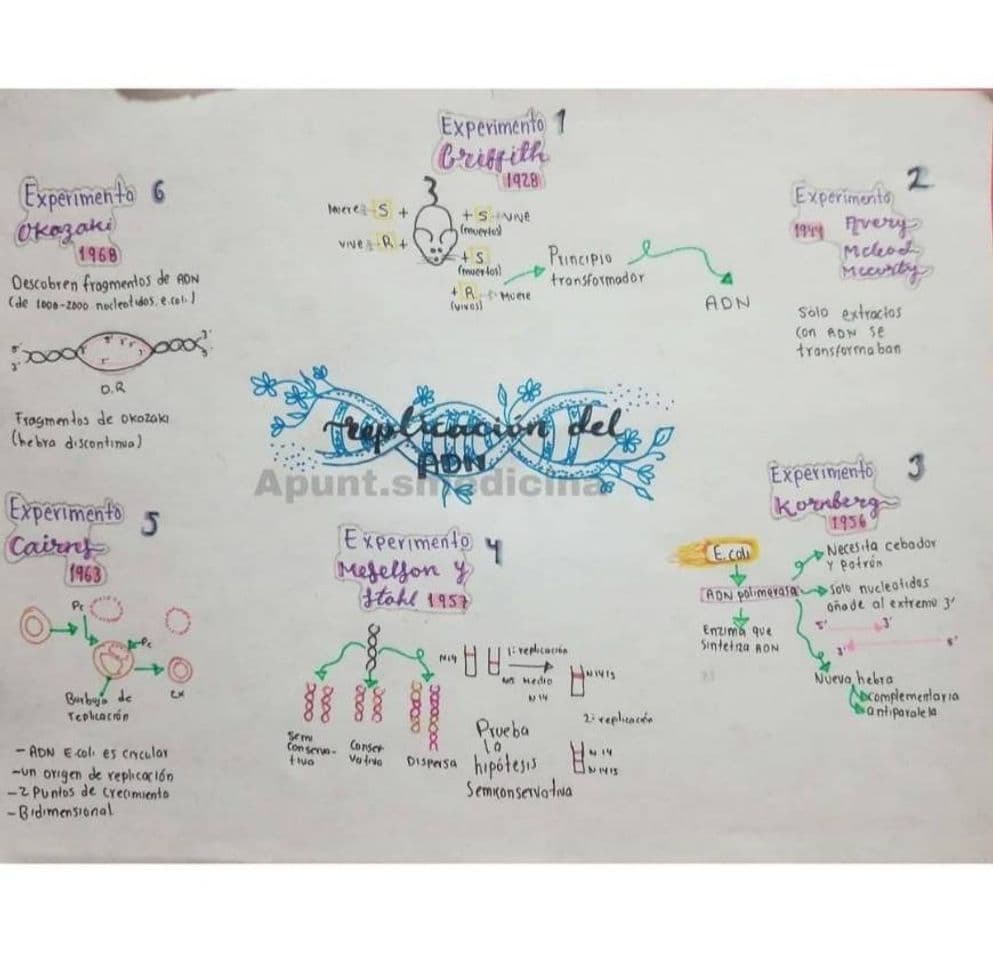 Experimento 1
Griffith
1928
Muere S +
vive R +
+ S vive
(muertos)
+ S
(muertos)
+ R Muere
(vivos)
Principio
transformador
ADN
Experimento 2
1944 Avery
Mcleod
Mccarty
Solo extractos
con ADN se
transformaban
Experimento 3
Kornberg
1956
E. coli
ADN polimerasa
Enzima que
sintetiza ADN
Necesita cebador
y patrón
Solo nucleotidos
añade al extremo 3'
5' 3'
3' 5'
Nueva hebra
complementaria
antiparalela
replicación del
ADN
Apunt.shmedicina
Experimento 4
Meselson y
Stahl 1957
N14
1ª replicación
Medio
N14
N14N15
2ª replicación
N14
N14N15
Semi
conserva-
tiva
Conser
vativa
Dispersa
Prueba
la
hipótesis
Semiconservativa
Experimento 5
Cairns
1963
Pc
Pc
Burbuja de
replicación
- ADN E.coli es circular
- un origen de replicación
- 2 Puntos de crecimiento
- Bidimensional
Experimento 6
Okazaki
1968
Descubren fragmentos de ADN
(de 1000-2000 nucleotidos. e.coli)
5' 3'
3' 5'
O.R
Fragmentos de Okozaki
(hebra discontinua)